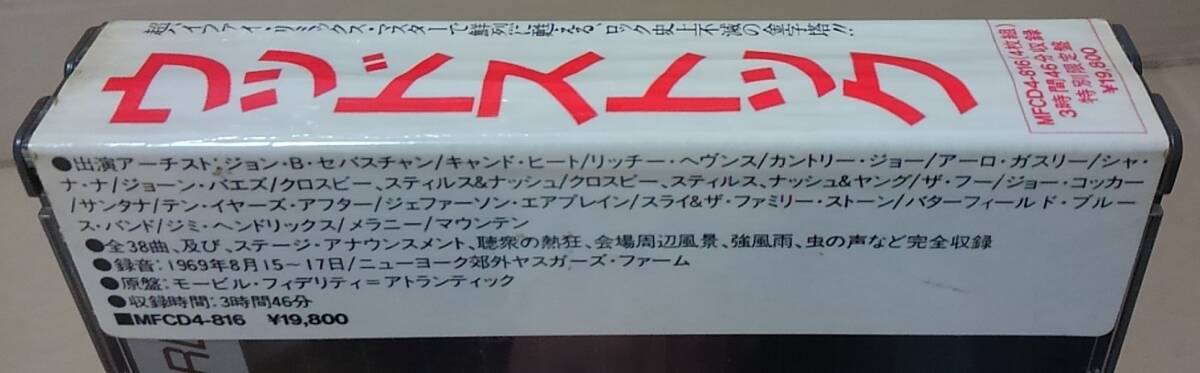 超ハイファイ・リミックス・マスターで鮮烈に甦える“ロック史上不滅の金字塔”!!
ウッドストック
MFCD4-816(4枚組)
3時間46分収録
特別限定盤
¥19,800
●出演アーチスト:ジョン・B・セバスチャン/キャンド・ヒート/リッチー・ヘヴンス/カントリー・ジョー/アーロ・ガスリー/シャ・
ナ・ナ/ジョーン・バエズ/クロスビー、スティルス&ナッシュ/クロスビー、スティルス、ナッシュ&ヤング/ザ・フー/ジョー・コッカー
/サンタナ/テン・イヤーズ・アフター/ジェファーソン・エアプレイン/スライ&ザ・ファミリー・ストーン/バターフィールド・ブルー
ス・バンド/ジミ・ヘンドリックス/メラニー/マウンテン
●全38曲、及び、ステージ・アナウンスメント、聴衆の熱狂、会場周辺風景、強風雨、虫の声など完全収録
●録音:1969年8月15〜17日/ニューヨーク郊外ヤスガーズ・ファーム
●原盤:モービル・フィデリティ=アトランティック
●収録時間:3時間46分
■MFCD4-816 ¥19,800